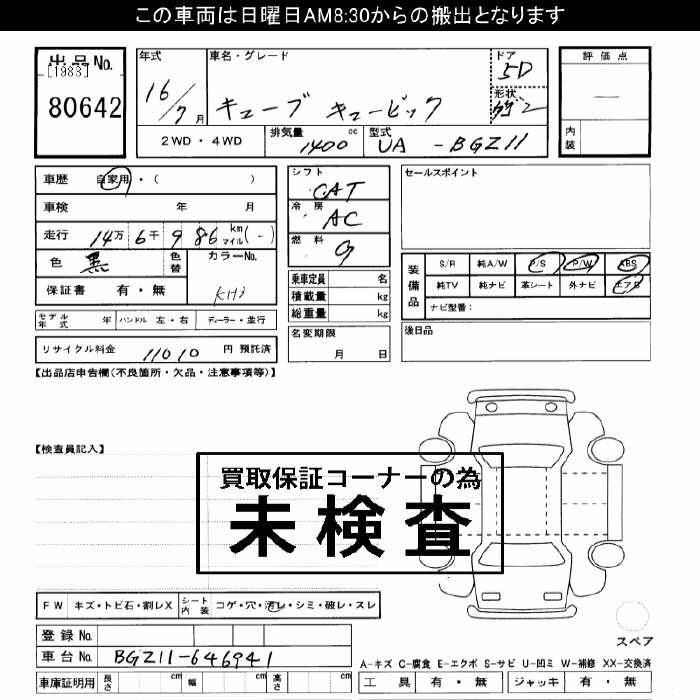 この車両は日曜日AM8:30からの搬出となります
出品No.
[1983]
80642
年式
16/7月
車名・グレード
キューブ キュービック
ドア
5D
形状
評価点
—
内装
2WD・4WD
排気量
1400cc
型式
UA - BGZ11
車歴 自家用・( )
車検 年 月
走行 14万6千986 km マイル(-)
色 黒 色替 カラーNo. KH3
保証書 有・無
モデル年式 年 ハンドル 左・右 ディーラー・並行
リサイクル料金 11010 円 預託済
シフト
CAT
冷房
AC
燃料
G
乗車定員 名
積載量 kg
総重量 kg
名変期限
月 日
セールスポイント
装備品
S/R 純A/W P/S P/W ABS
純TV 純ナビ 革シート 外ナビ エアB
ナビ型番:
後日品
【出品店申告欄(不良箇所・欠品・注意事項等)】
【検査員記入】
買取保証コーナーの為
未検査
FW キズ・トビ石・割レX シート内装 コゲ・穴・汚レ・シミ・破レ・スレ
登録No.
車台No. BGZ11-646941
車庫証明用 長さ cm 幅 cm 高さ cm
スペア
A-キズ C-腐食 E-エクボ S-サビ U-凹ミ W-補修 XX-交換済
工具 有・無 ジャッキ 有・無